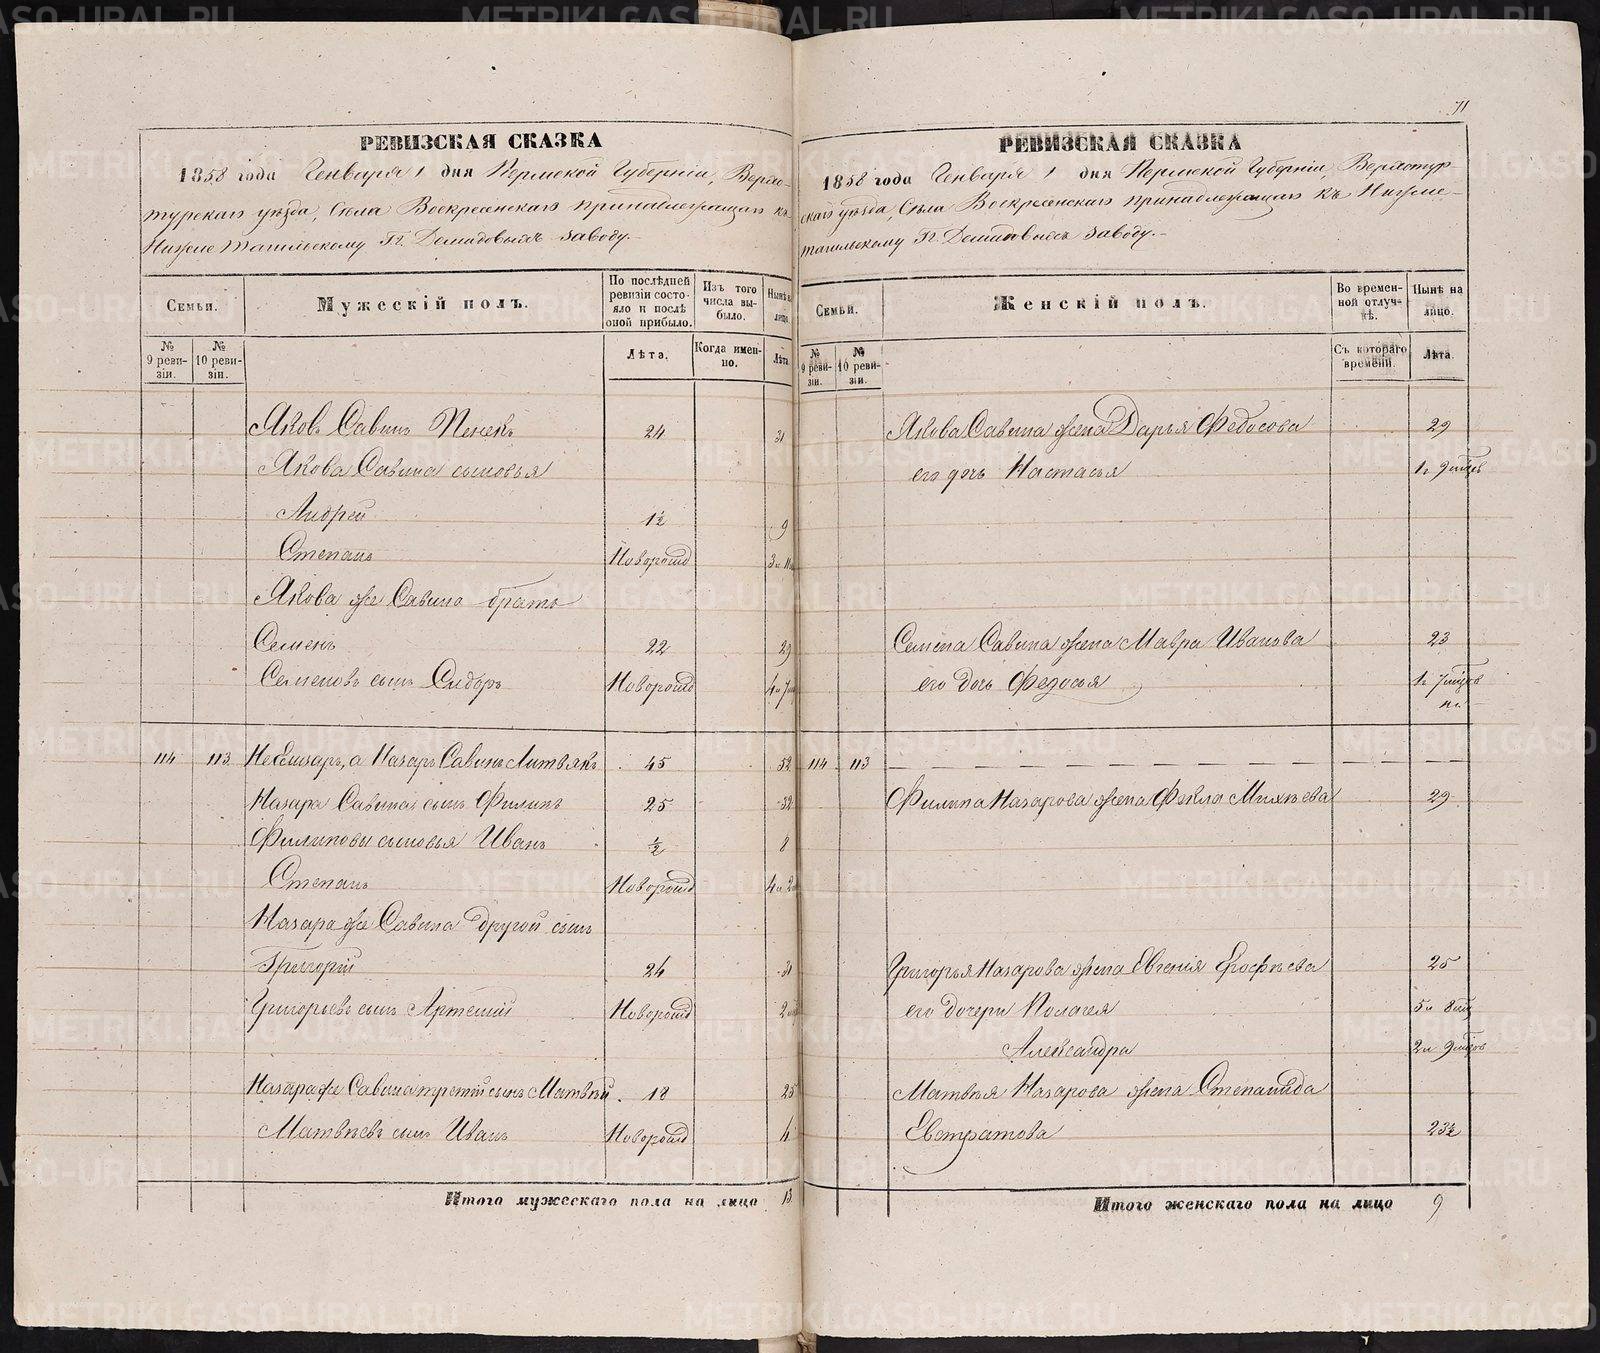 71
РЕВИЗСКАЯ СКАЗКА
1858 года Генваря 1 дня Пермской Губерніи, Верхо-
турскаго уѣзда, Села Воскресенскаго принадлежащаго къ
Нижне Тагильскому Гг. Демидовыхъ заводу.
Семьи.
Мужескій полъ.
По послѣдней ревизіи состояло и послѣ оной прибыло.
Изъ того числа выбыло.
Нынѣ на лицо.
№ 9 ревизіи.
№ 10 ревизіи.
Лѣта.
Когда именно.
Лѣта.
Яковъ Савинъ Пенекъ 24 31
Якова Савина сыновья
Андрей 1½ 9
Степанъ Новорожд
Якова же Савина братъ
Семенъ 22 29
Семеновъ сынъ Сидоръ Новорожд
114 113 Не Елизаръ, а Назаръ Савинъ Литвякъ 45 52
Назара Савина сынъ Филипъ 25 32
Филиповы сыновья Иванъ ½ 8
Степанъ Новорожд
Назара же Савина другой сынъ
Григорій 24 31
Григорьевъ сынъ Артемій Новорожд
Назара же Савина третій сынъ Матвѣй 18 25
Матвѣевъ сынъ Иванъ Новорожд 4
Итого мужескаго пола на лицо 13
РЕВИЗСКАЯ СКАЗКА
1858 года Генваря 1 дня Пермской Губерніи, Верхотур-
скаго уѣзда, Села Воскресенскаго принадлежащаго къ Нижне-
тагильскому Гг. Демидовыхъ заводу.
Семьи.
Женскій полъ.
Во временной отлучкѣ.
Нынѣ на лицо.
№ 9 ревизіи.
№ 10 ревизіи.
Съ котораго времени.
Лѣта.
Якова Савина жена Дарья Федосова 29
его дочь Настасья
Семена Савина жена Мавра Иванова 23
его дочь Федосья
114 113
Филипа Назарова жена Фекла Михѣева 29
Григорья Назарова жена Евгенія Ерофѣева 25
его дочери Полагея
Александра
Матвѣя Назарова жена Степанида
Евстратова 23½
Итого женскаго пола на лицо 9
METRIKI.GASO-URAL.RU